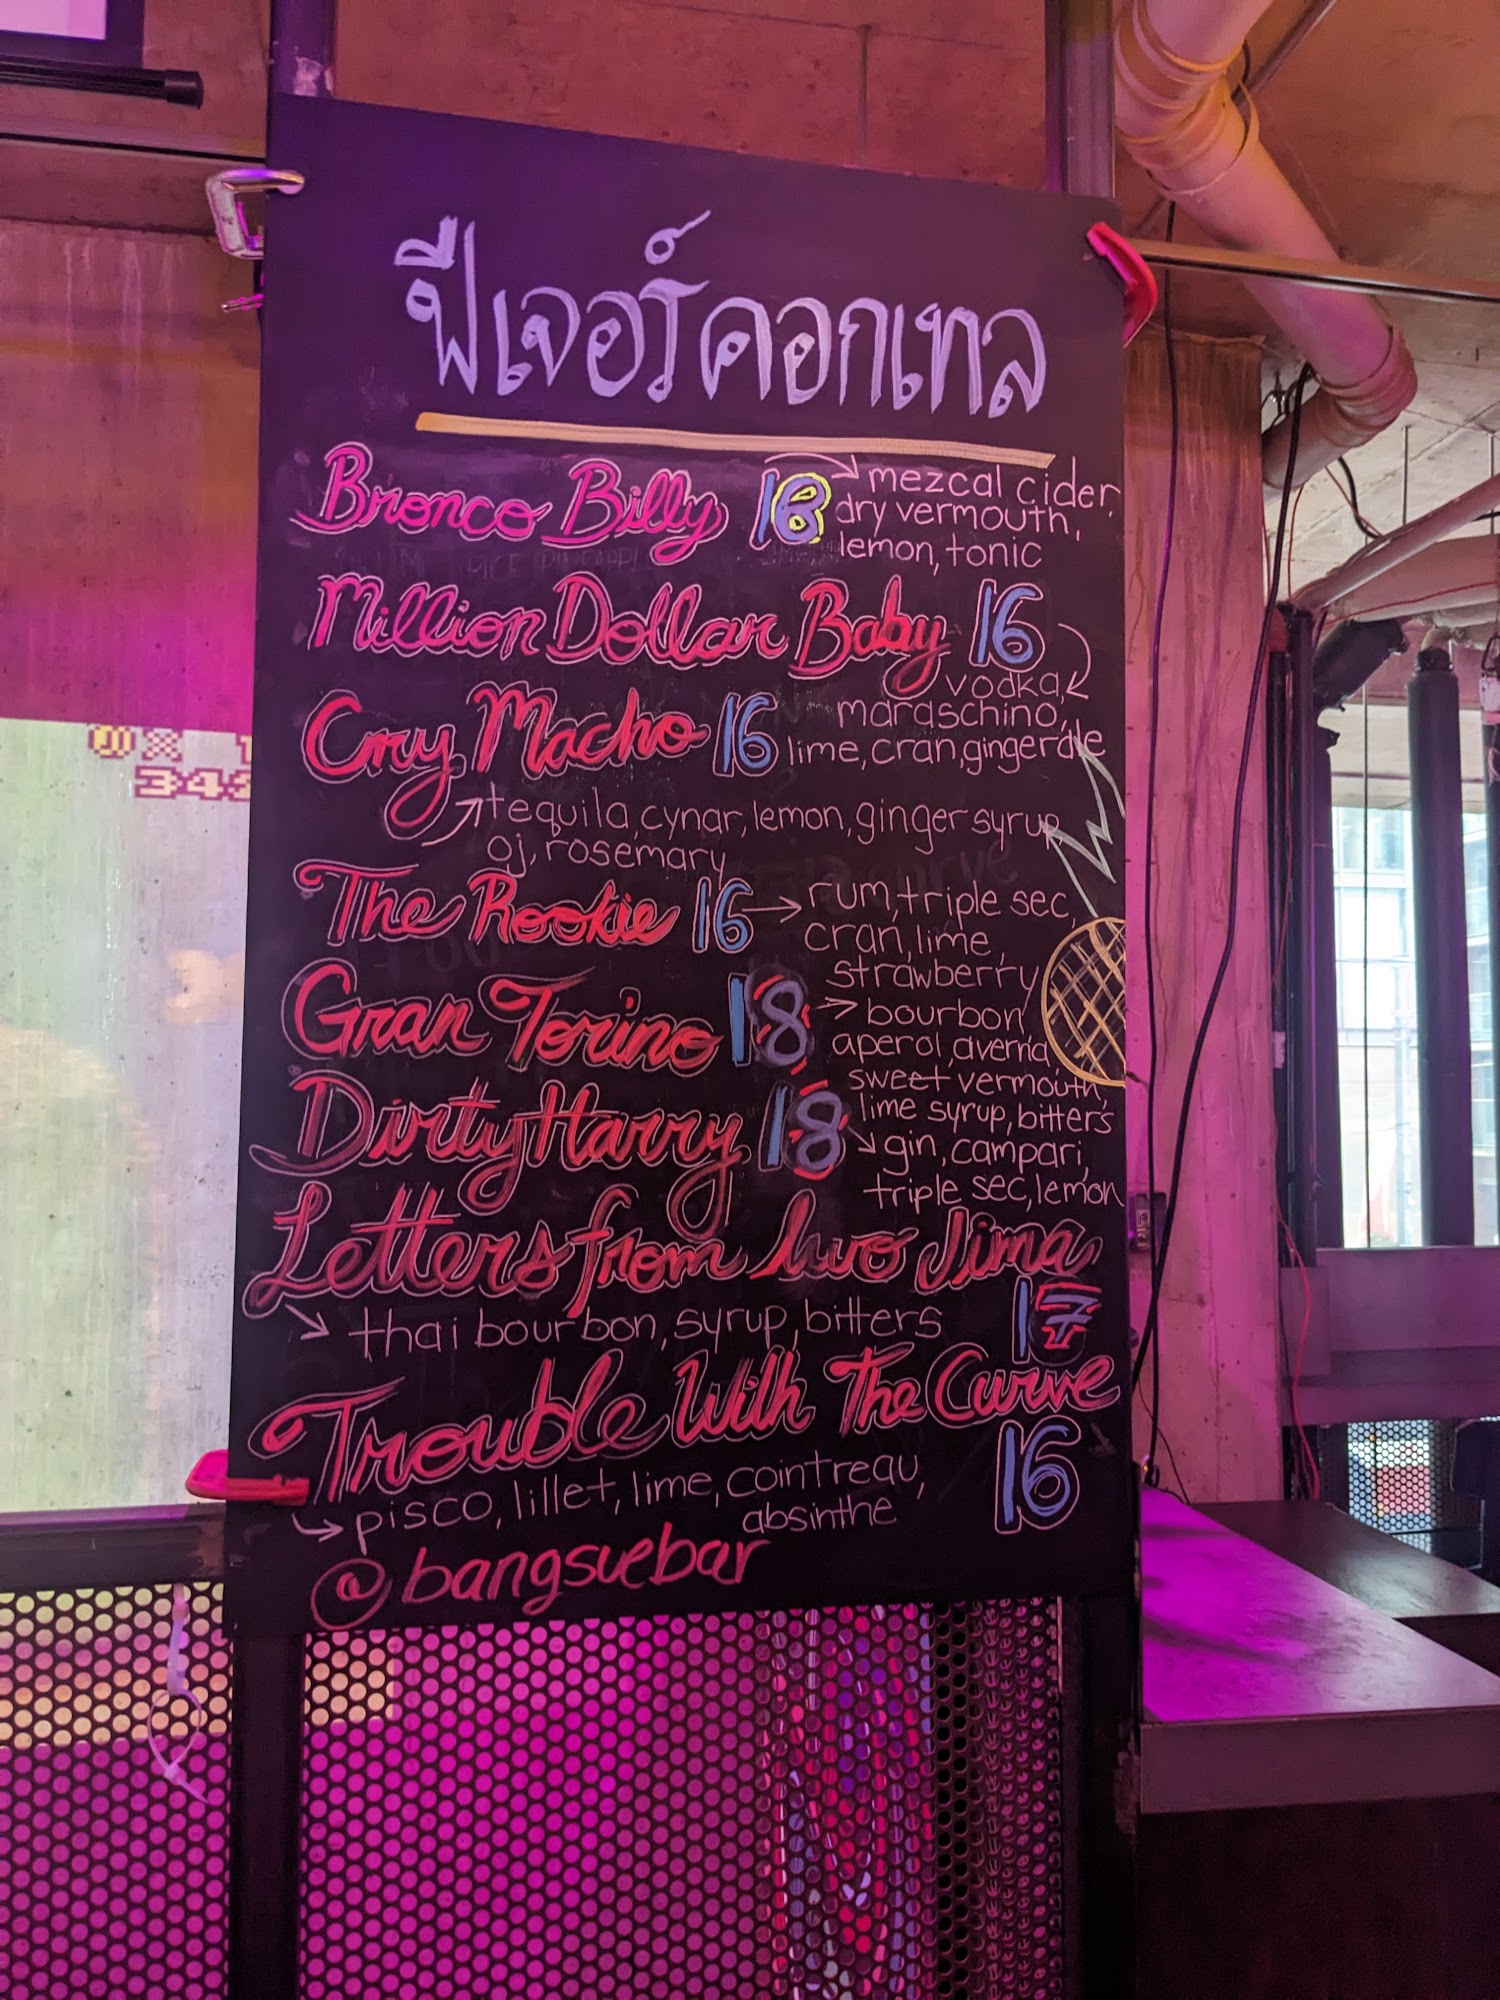 ฟีเจอร์คอกเทล
Bronco Billy 18
mezcal cider,
dry vermouth,
lemon, tonic
Million Dollar Baby 16
vodka,
maraschino,
lime, cran, gingerale
Cry Macho 16
tequila, cynar, lemon, ginger syrup
oj, rosemary
The Rookie 16
rum, triple sec,
cran, lime,
strawberry
Gran Torino 18
bourbon,
aperol, averna,
sweet vermouth,
lime syrup, bitters
Dirty Harry 18
gin, campari,
triple sec, lemon
Letters from Iwo Jima
thai bourbon, syrup, bitters 17
Trouble With The Curve
pisco, lillet, lime, cointreau, 16
absinthe
@bangsuebar
342